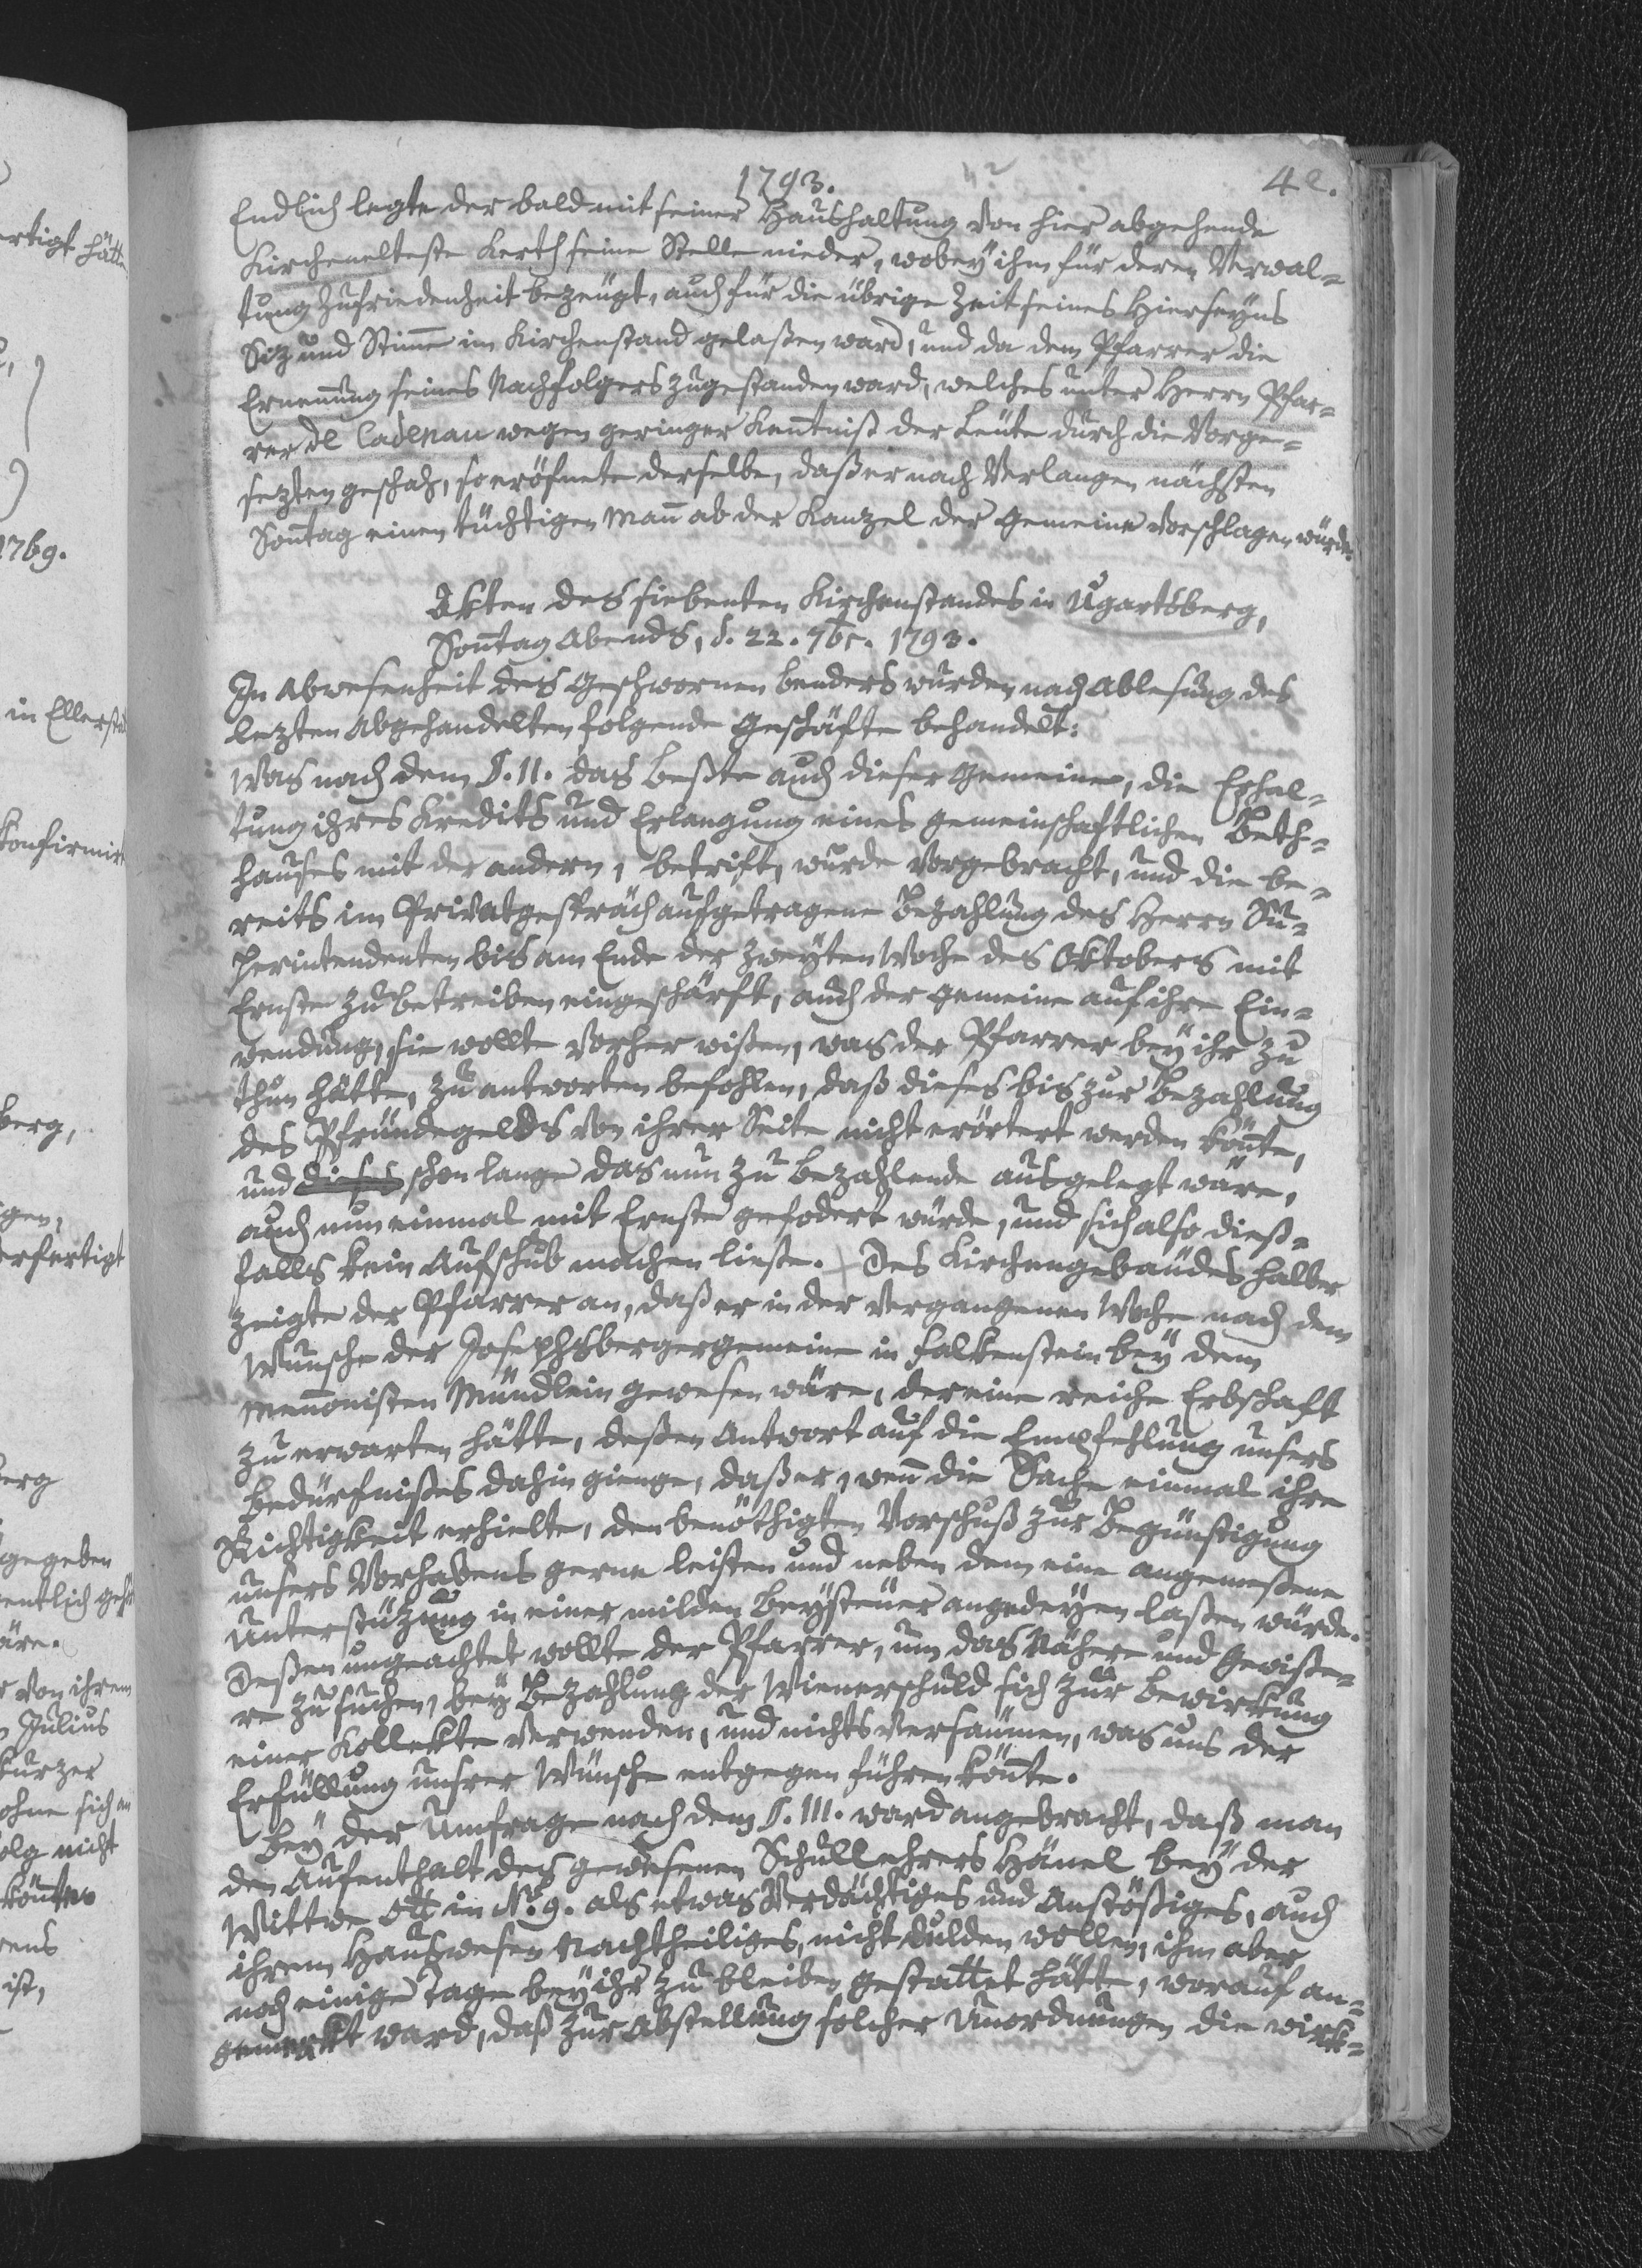 1793.
42
42.
Endlich legte der bald mit seiner Haushaltung von hier abgehende
Kirchenelteste Kerth seine Stelle nieder, wobey ihm für deren Verwal-
tung Zufriedenheit bezeugt, auch für die übrige Zeit seines Hierseyns
Siz und Stimme im Kirchenstand gelaßen ward, und da dem Pfarrer die
Ernennung seines Nachfolgers zugestanden ward, welches unter Herrn Pfar-
rer de Cadenau wegen geringer Kentniß der Leute durch die Vorge-
sezten geschah, so eröfnete derselbe, daß er nach Verlangen nächsten
Sontag einen tüchtigen Mañ ab der Kanzel der Gemeine vorschlagen würde.
Akten des siebenten Kirchenstandes in Ugartsberg,
Sontag Abends, d. 22. 7br. 1793.
In Abwesenheit des Geschwornen Benders wurden nach Ablesung des
lezten Abgehandelten folgende Geschäfte behandelt:
Was nach dem §. II. das Beßte auch dieser Gemeine, die Erhal-
tung ihres Kredits und Erlangung eines gemeinschaftlichen Beth-
hauses mit der andern, betrift, wurde vorgebracht, und die be-
reits im Privatgespräch aufgetragene Bezahlung des Herrn Su-
perintendenten bis am Ende der zweyten Woche des Oktobers mit
Ernste zu betreiben eingeschärft, auch der Gemeine auf ihre Ein-
wendung, sie wollte vorher wißen, was der Pfarrer bey ihr zu
thun hätte, zu antworten befohlen, daß dieses bis zur Bezahlung
des Pfründegelds von ihrer Seite nicht erörtert werden köñte,
und dieses schon lange das nun zu bezahlende ausgelegt wäre,
auch nun einmal mit Ernste gefodert würde, und sich also dieß-
falls kein Aufschub machen ließe. Des Kirchengebäudes halber
zeigte der Pfarrer an, daß er in der vergangenen Woche nach dem
Wunsche der Josephsbergergemeine in Falkenstein bey dem
Meñonisten Mündlein gewesen wäre, der eine reiche Erbschaft
zu erwarten hätte, deßen Antwort auf die Empfehlung unsers
Bedürfnißes dahin gienge, daß er, weñ die Sache einmal ihre
Richtigkeit erhielte, den benöthigten Vorschuß zur Begünstigung
unsers Vorhabens gerne leisten und neben dem eine angemeßene
Unterstüzung in einer milden Beysteuer angedeyen laßen würde.
Deßen ungeachtet wollte der Pfarrer, um das Nähere und Gewiße-
re zu suchen, bey Bezahlung der Wienerschuld sich zur Bewirkung
einer Kollekte verwenden, und nichts versäumen, was uns der
Erfüllung unsrer Wünsche entgegen führen köñte.
Bey der Umfrage nach dem §. III. ward angebracht, daß man
den Aufenthalt des gewesenen Schullehrers Hänel bey der
Wittwe Ott in No. 9. als etwas Verdächtiges und Anstößiges, auch
ihrem Hauswesen Nachtheiliges, nicht dulden wollen, ihm aber
noch einige Tage bey ihr zu bleiben gestattet hätte, worauf an-
gemerkt ward, daß zur Abstellung solcher Unordnungen die wirk-
ertigt hätte
1769.
in Ellerstad
konfirmirt
berg,
gen,
erfertigt
berg
gegeben
äre.
von ihrem
Julius
kurzer
ohne sich an
olg nicht
köñten
ens
ist,